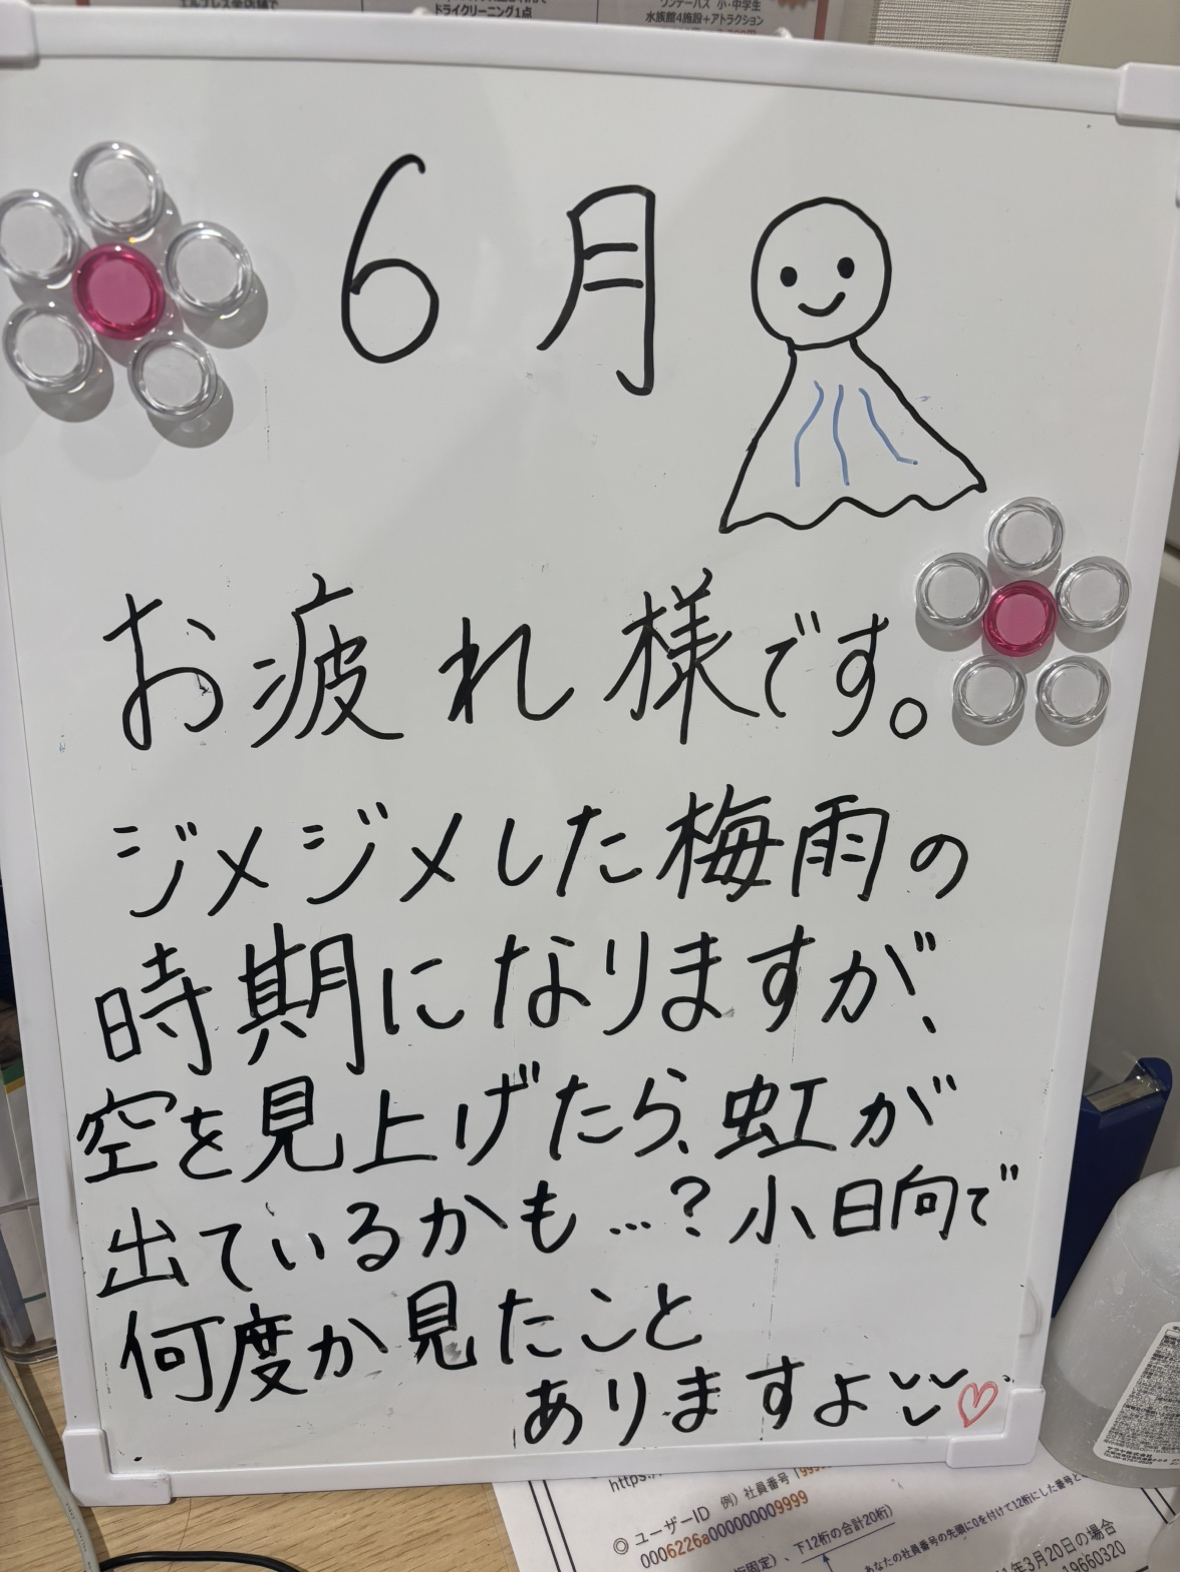 エルブレス全店舗で
ドライクリーニング1点
ワンデーパス 小・中学生
水族館4施設+アトラクション
6月
お疲れ様です。
ジメジメした梅雨の
時期になりますが、
空を見上げたら、虹が
出ているかも…?小日向で
何度か見たこと
ありますよ
https:/
◎ ユーザーID 例)社員番号「999
0006226a000000009999
桁固定)、下12桁の合計20桁)
あなたの社員番号の先頭に0を付けて12桁にした番号と
年3月20日の場合
19660320